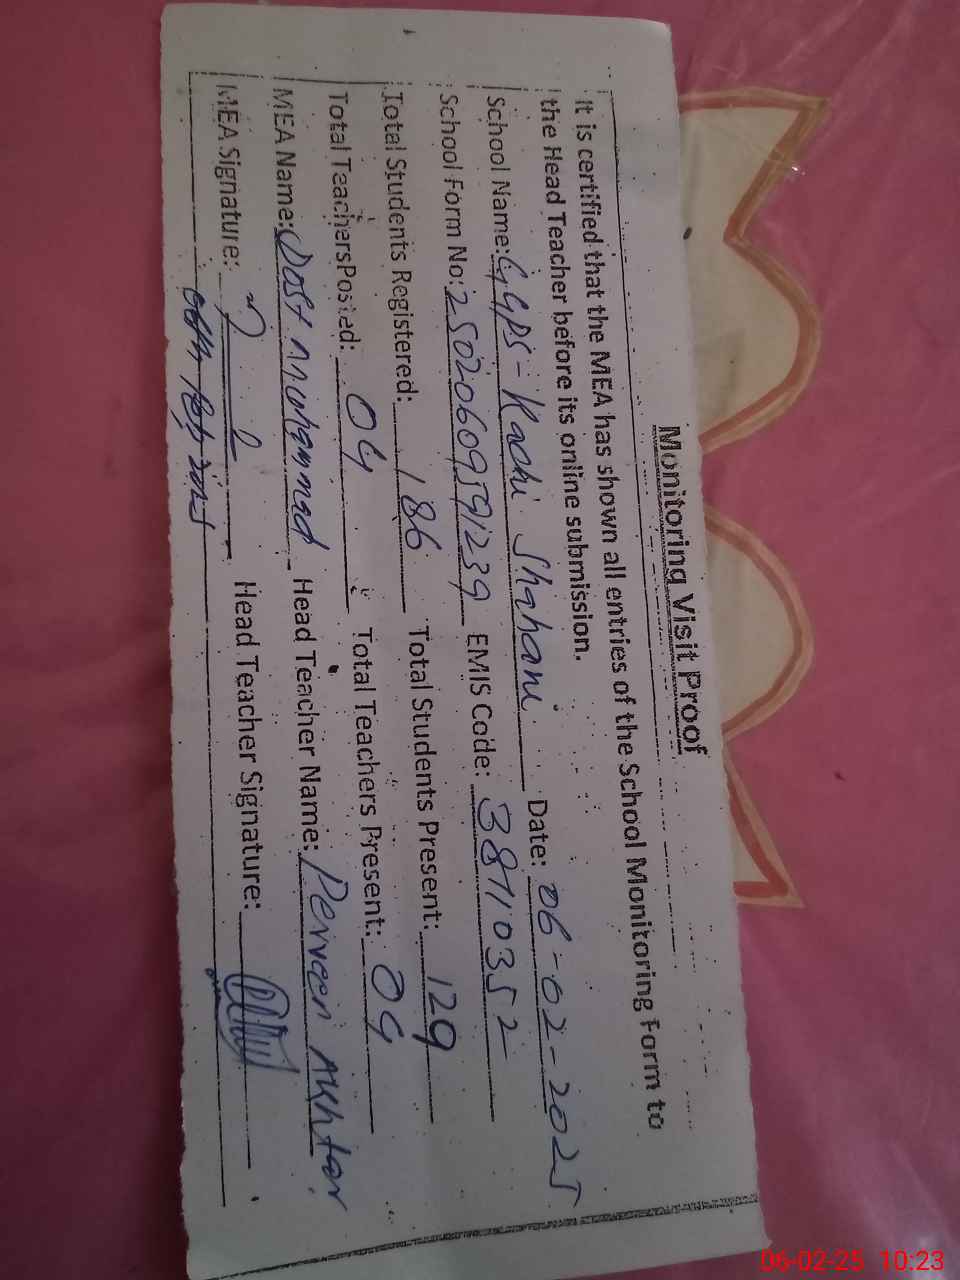 Monitoring Visit Proof
It is certified that the MEA has shown all entries of the School Monitoring Form to
the Head Teacher before its online submission.
School Name: GGPS-Kachi Shahani Date: 06-02-2025
School Form No: 25020609591239 EMIS Code: 38110352
Total Students Registered: 186 Total Students Present: 129
Total Teachers Posted: 04 Total Teachers Present: 04
MEA Name: Dost Muhammad Head Teacher Name: Perveen Akhtar
MEA Signature: Head Teacher Signature:
06-02-25 10:23